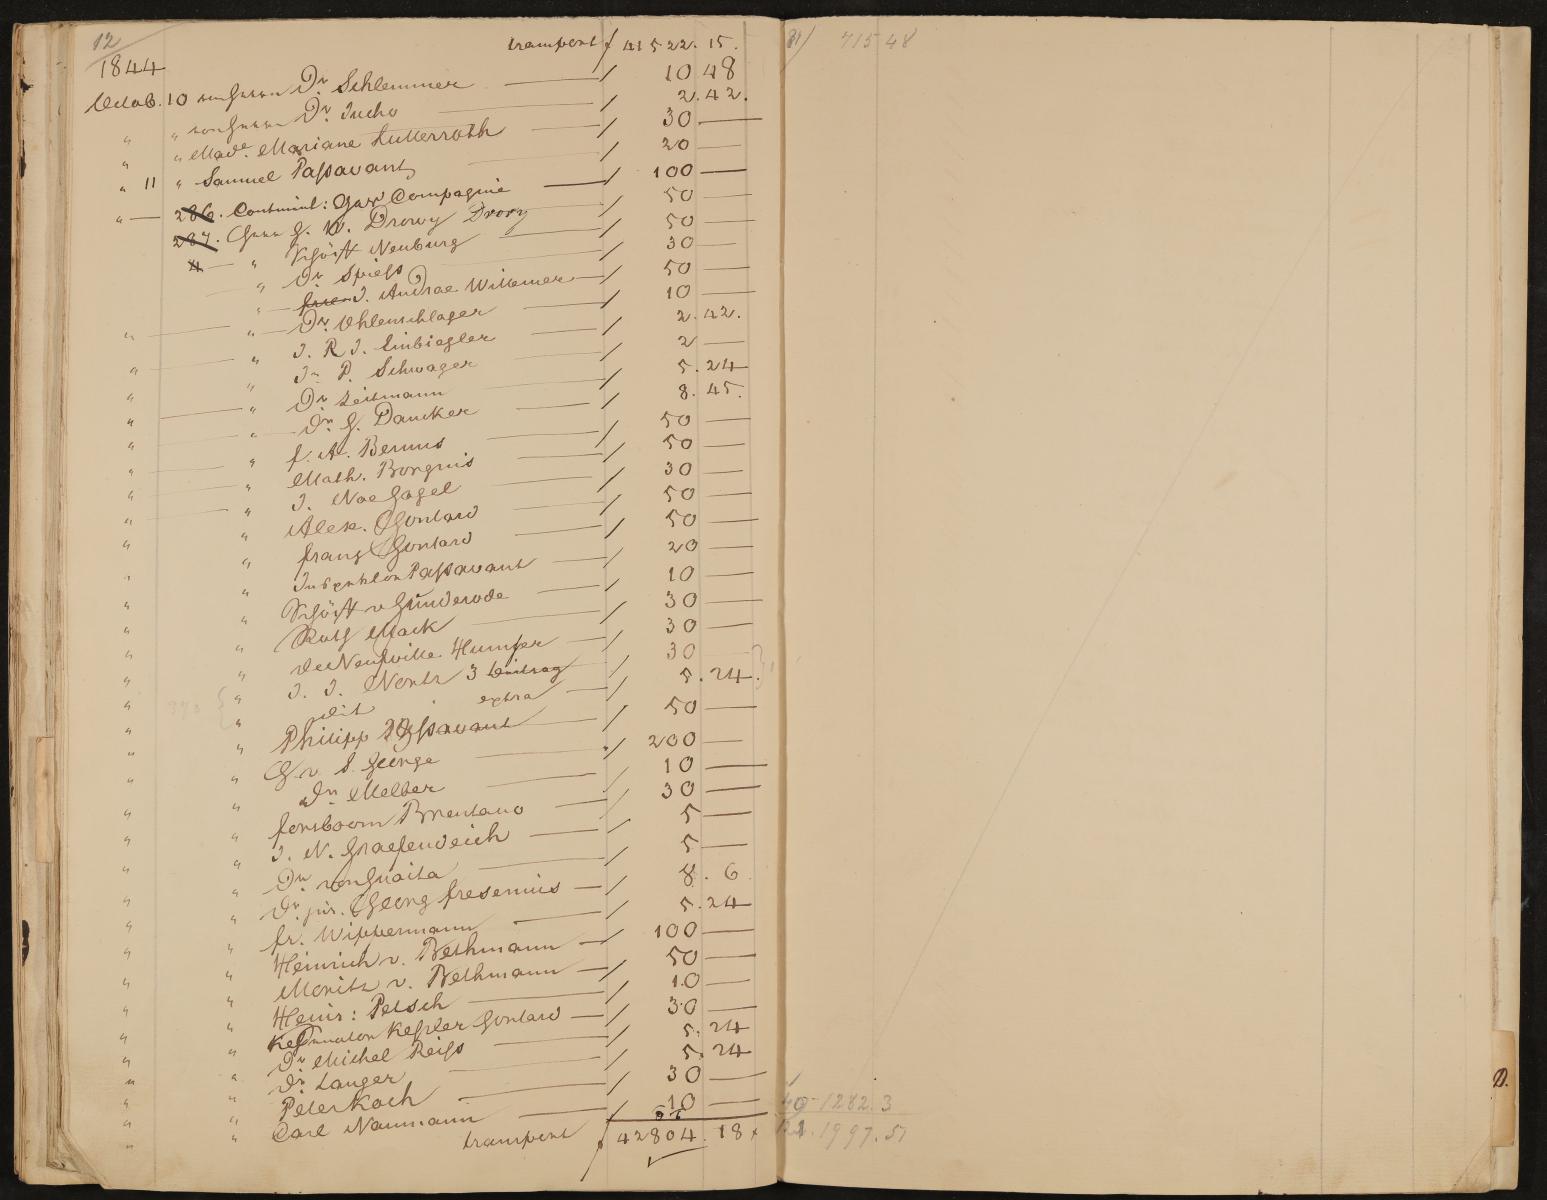 12
1844 transport f 41522. 15.
Octob. 10 von Herrn Dr. Schlemmer 10 48
" " von Herrn Dr. Jucho 2. 42.
" " Made. Mariane Lutterroth 30 —
" 11 " Samuel Paſsavant 20 —
" — 286. Continent: Gas Compagnie 100 —
287. Herr G. W. Drowy Drory 50 —
4 — " Schöff Neuburg 50 —
" Dr Spieſs 30 —
" J. Andrae Willemer 50 —
" " Dr. Ohlenschlager 10 —
" " J. R. J. Einbiegler 2. 42.
" " P. Schwager 2 —
" " Dr Leitmann 5. 24
" " Dr. G. Dancker 8. 45.
" " f. A. Bernus 50 —
" " Math. Borgnis 50 —
" " J. Noe Gogel 30 —
" " Alex. Gontard 50 —
" " franz Gontard 50 —
" " Inspektor Paſsavant 20 —
" " Schöff v Günderode 10 —
" " Rath Mack 30 —
" " De Neufville Humser 30 —
" " J. J. Wentz 3 beitrag 30
" " dit extra 5. 24.
" " Philipp Paſsavant 50 —
" " G v. S. George 200 —
" " Dr Melber 10 —
" " forsboom Brentano 30 —
" " J. N. Graefendeich 5 —
" " Dr von Guaita 5 —
" " Dr. jur. Georg fresenius 8. 6
" " fr. Wippermann 5. 24
" " Heinrich v. Bethmann 100 —
" " Moritz v. Bethmann 50 —
" " Heinr: Petsch 10 —
" " Keſsler Gontard 30 —
" " Dr Michel Reiſs 5. 24
" " Dr. Langer 5. 24
" " Peter Koch 30 —
" " Carl Naumann 10 —
transport f 42804. 18
715 48
40 1282. 3
1997. 51
D.